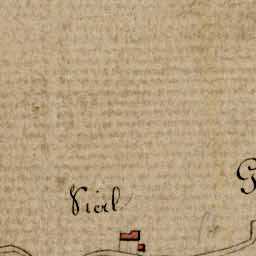 Vierl
G